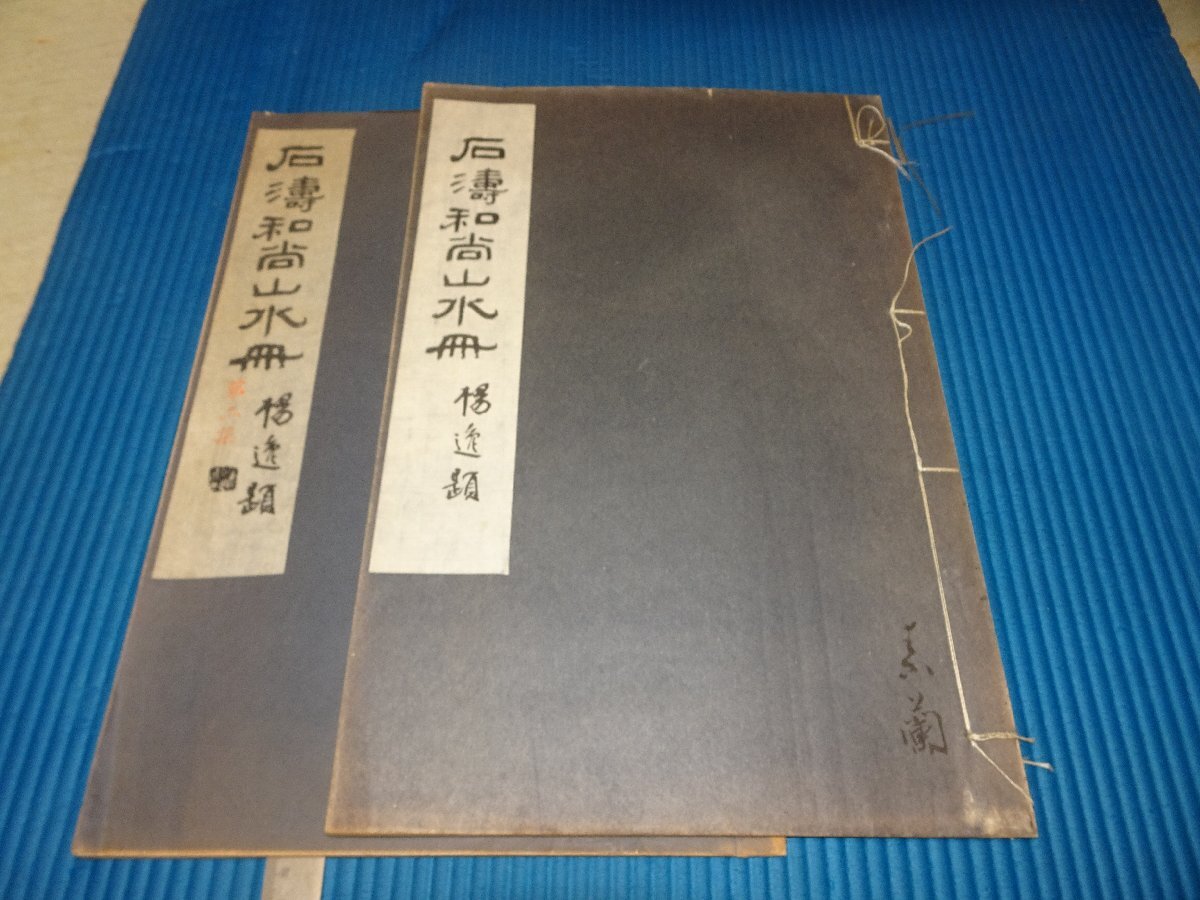 蘭
石濤和尚山水冊
楊逸題
石濤和尚山水冊
楊逸題